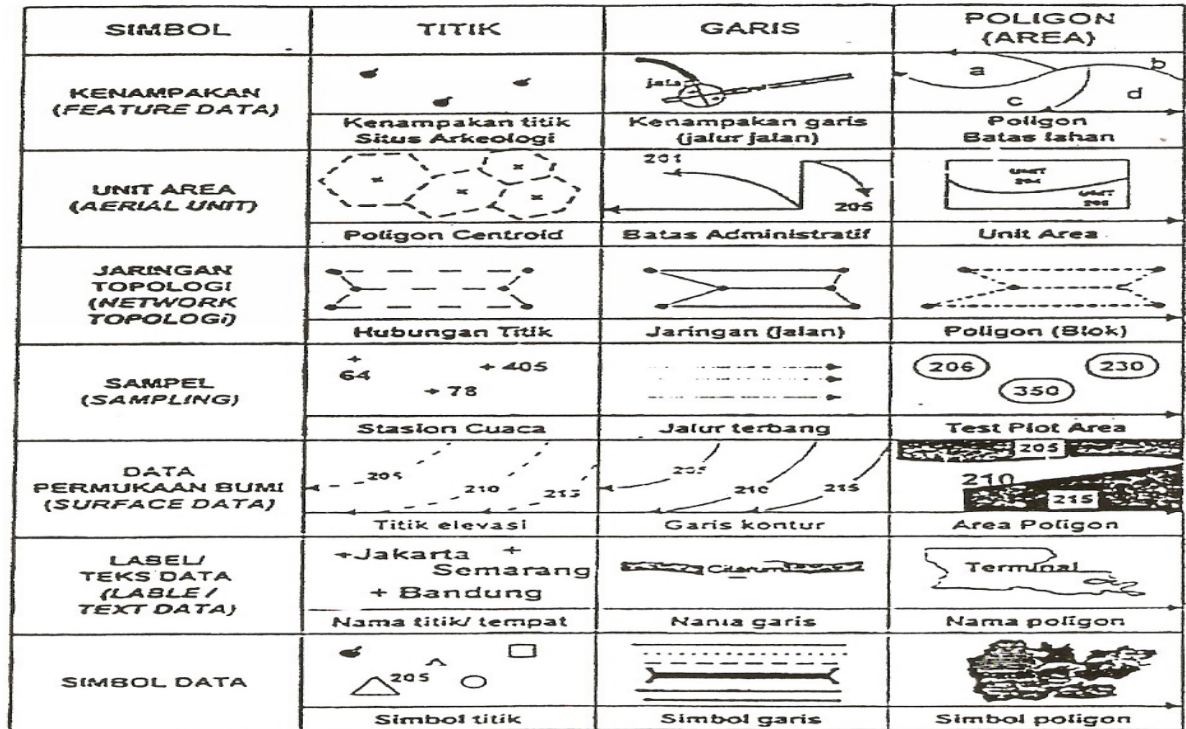 SIMBOL
TITIK
GARIS
POLIGON
(AREA)
KENAMPAKAN
(FEATURE DATA)
Kenampakan titik
Situs Arkeologi
jala
Kenampakan garis
(jalur jalan)
a
b
c
d
Poligon
Batas lahan
UNIT AREA
(AERIAL UNIT)
Poligon Centroid
201
205
Batas Administratif
UNIT
204
UNIT
Unit Area
JARINGAN
TOPOLOGI
(NETWORK
TOPOLOGi)
Hubungan Titik
Jaringan (jalan)
Poligon (Blok)
SAMPEL
(SAMPLING)
64
405
78
Stasion Cuaca
Jalur terbang
206
230
350
Test Plot Area
DATA
PERMUKAAN BUMI
(SURFACE DATA)
205
210
215
Titik elevasi
205
210
215
Garis kontur
205
210
215
Area Poligon
LABEL/
TEKS DATA
(LABLE /
TEXT DATA)
+Jakarta +
Semarang
+ Bandung
Nama titik/ tempat
Citarum
Nama garis
Terminal
Nama poligon
SIMBOL DATA
205
Simbol titik
Simbol garis
Simbol poligon